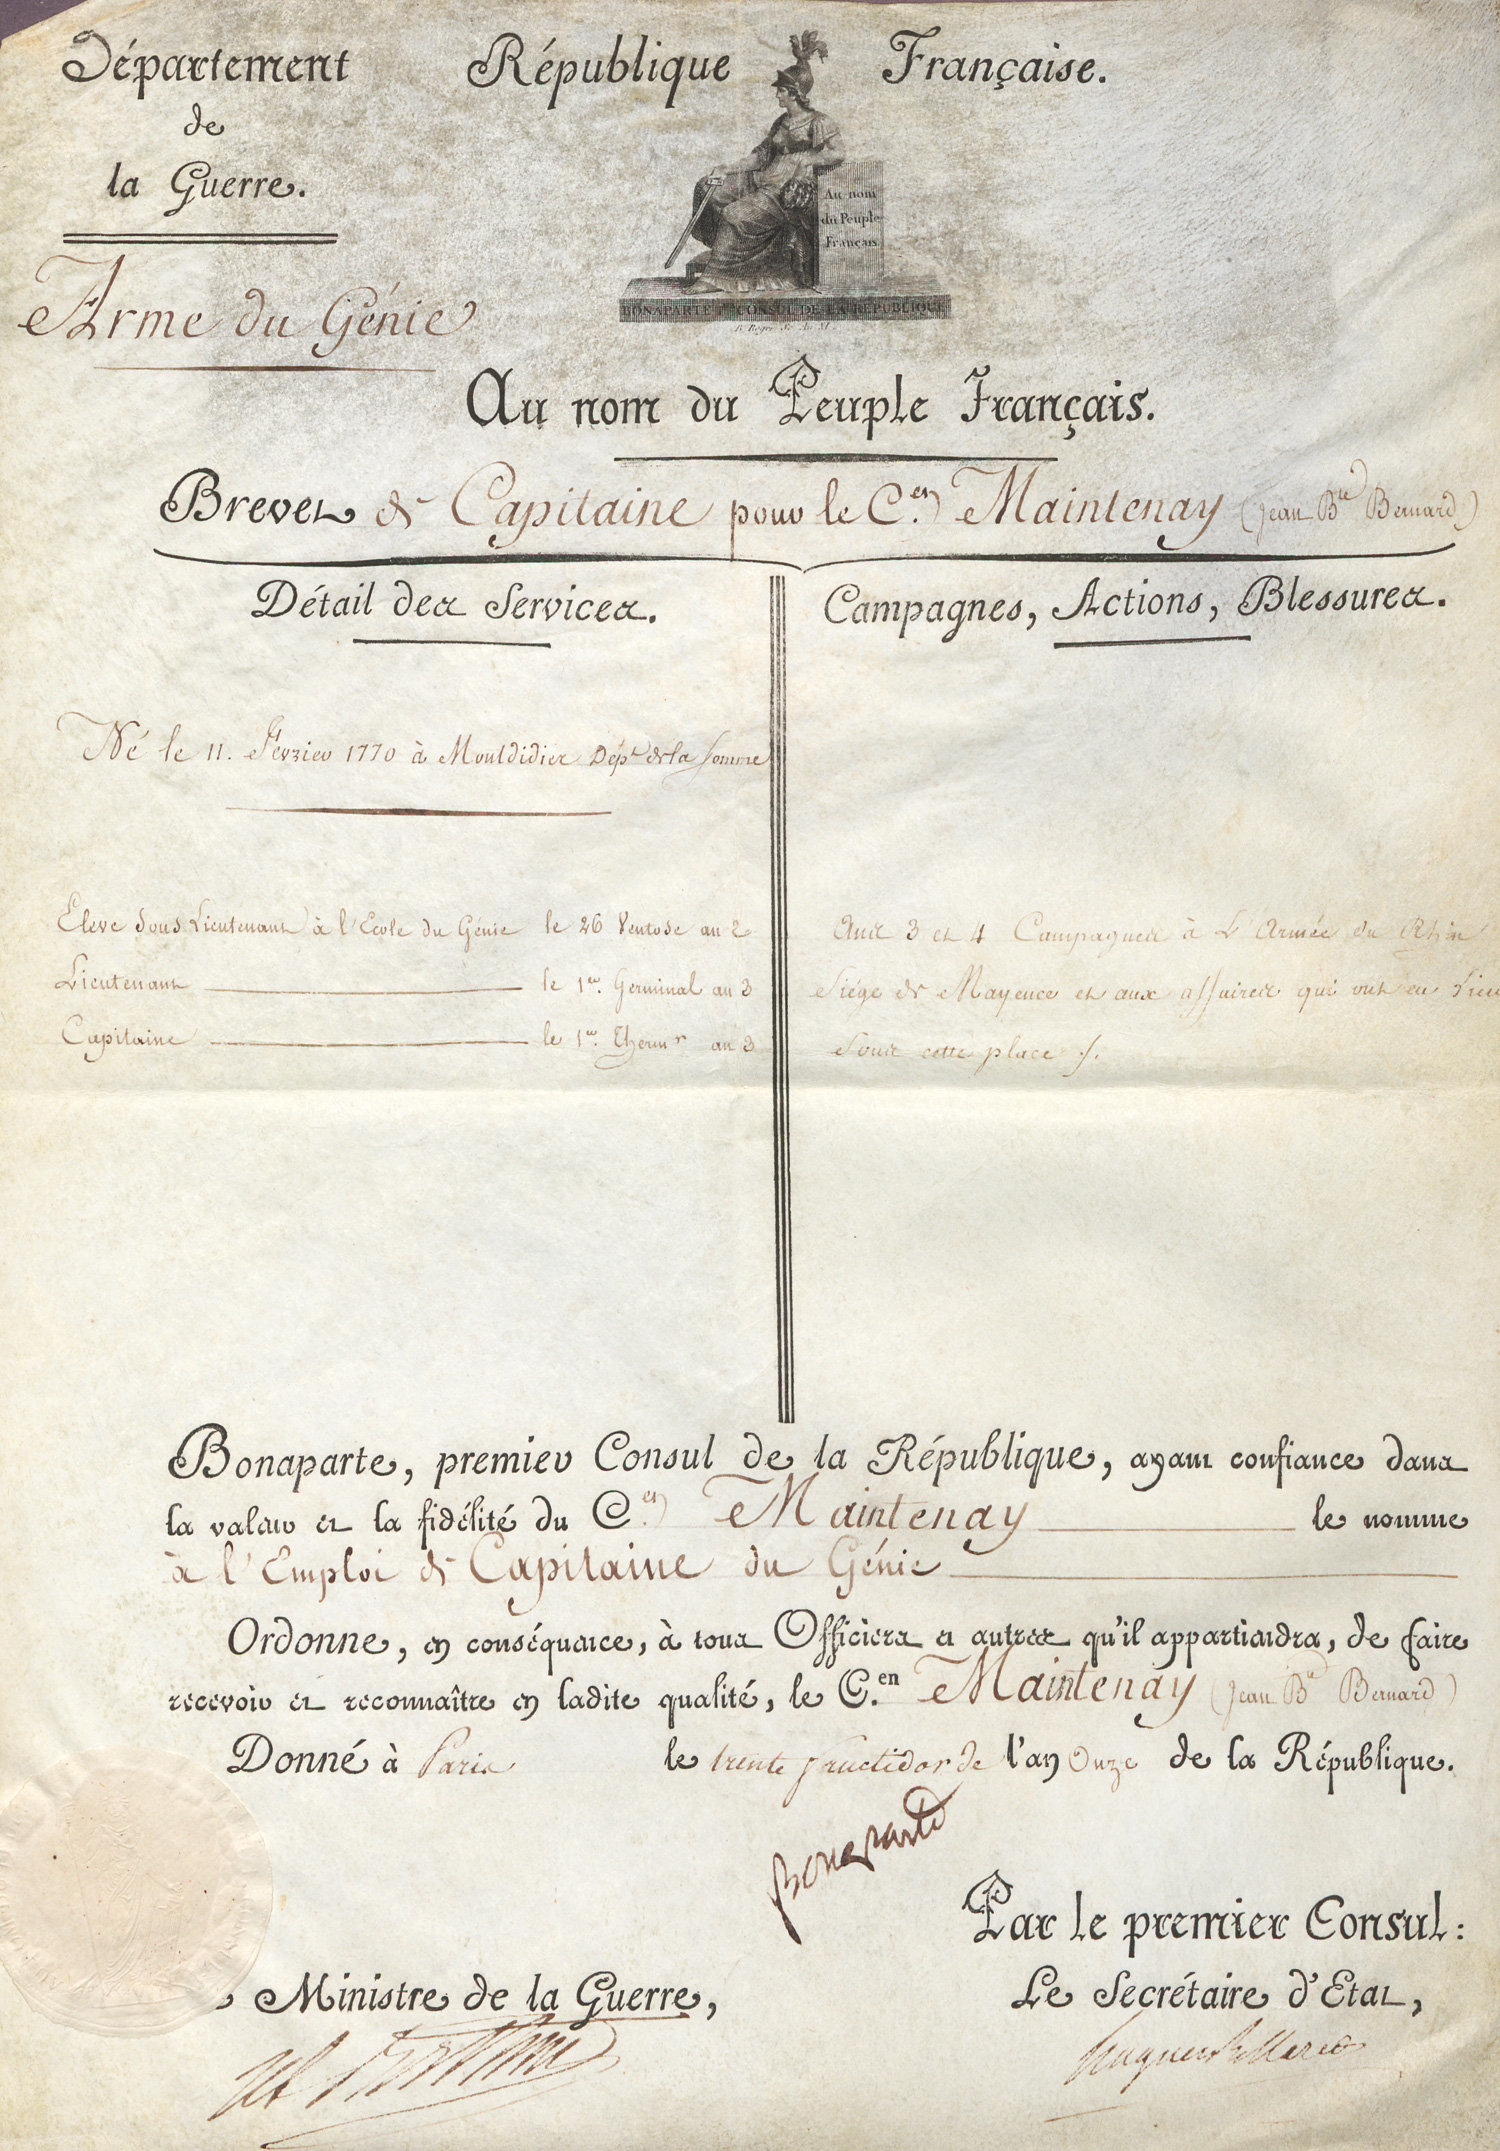 Département République Française.
de
la Guerre.
Au nom
du Peuple
Français.
BONAPARTE 1er CONSUL DE LA REPUBLIQUE
Arme du Génie
Au nom du Peuple Français.
Brevet de Capitaine pour le C.en Maintenay (Jean Bte Bernard)
Détail des Services.
Campagnes, Actions, Blessures.
Né le 11. Février 1770 à Montdidier Dépt de la Somme
Eleve sous Lieutenant à l'Ecole du Génie le 26 Ventose an 2
Lieutenant le 1er. Germinal an 3
Capitaine le 1er. Thermr an 3
Ans 3 et 4 Campagnes à L'Armée du Rhin
Siége de Mayence et aux affaires qui ont eu lieu
sous cette place ./.
Bonaparte, premier Consul de la République, ayant confiance dans
la valeur et la fidélité du C.en Maintenay le nomme
à l'Emploi de Capitaine du Génie
Ordonne, en conséquence, à tous Officiers et autres qu'il appartiendra, de faire
recevoir et reconnaître en ladite qualité, le C.en Maintenay (Jean Bte Bernard)
Donné à Paris le trente fructidor de l'an Onze de la République.
Bonaparte
Par le premier Consul:
Ministre de la Guerre,
Le Secrétaire d'Etat,
Hugues B. Maret